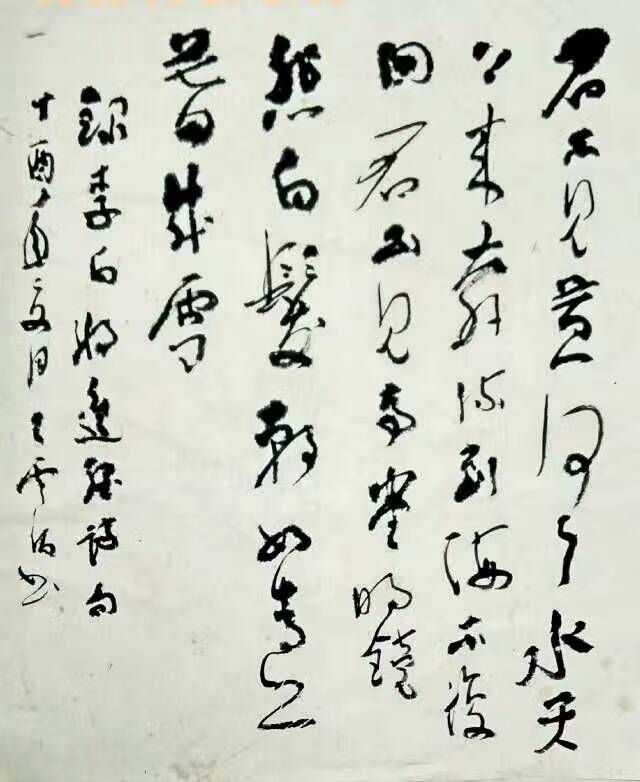 君不見黄河之水天
上来奔流到海不復
回君不見高堂明鏡
悲白髮朝如青丝
暮成雪
錄李白將進酒詩句
丁酉月书